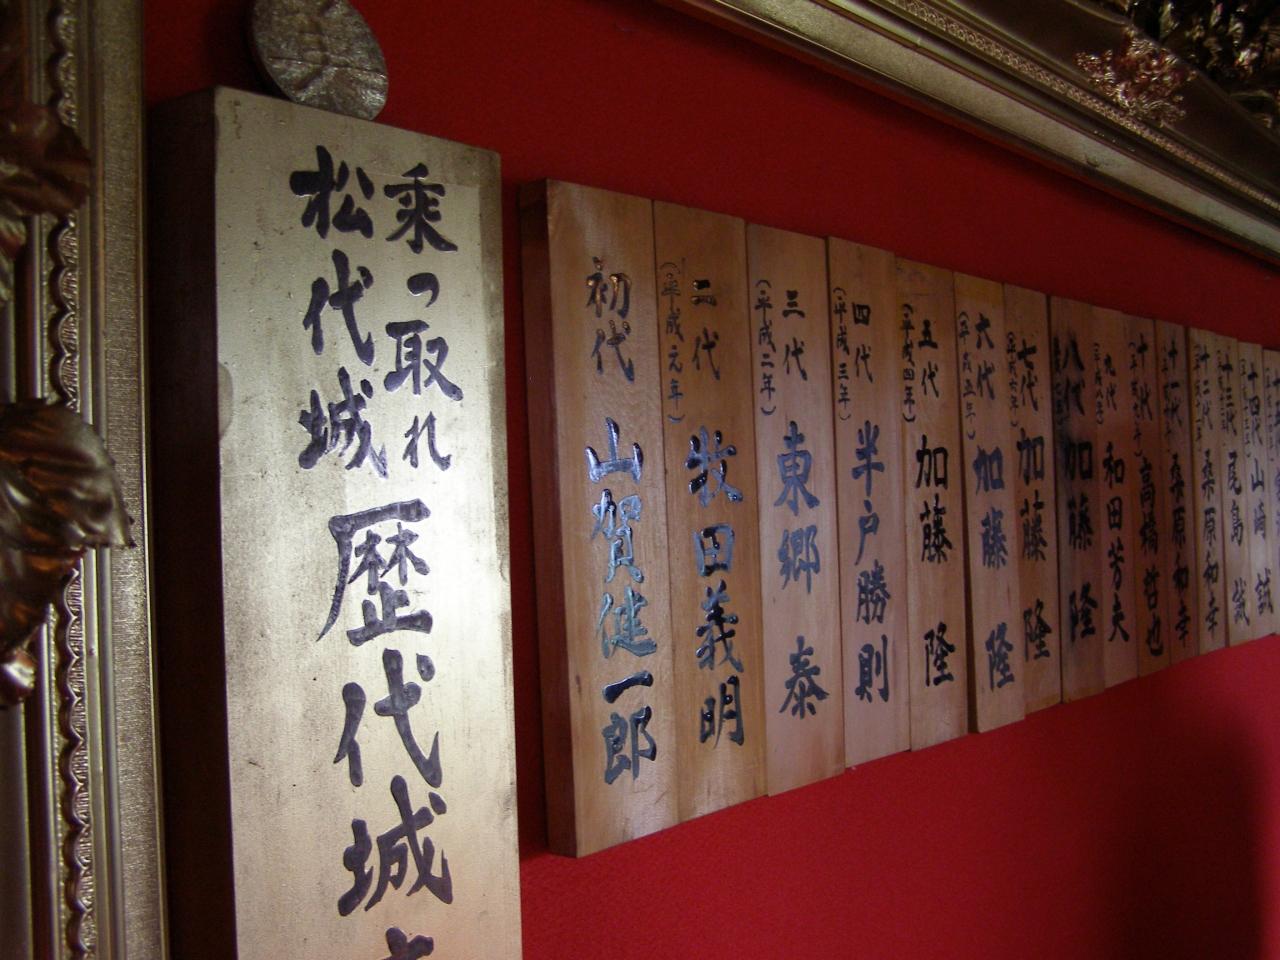 乗っ取れ
松代城
歴代城
初代 山賀健一郎
(平成元年)
二代 牧田義明
(平成二年)
三代 東郷 泰
(平成三年)
四代 半戸勝則
(平成四年)
五代 加藤 隆
(平成五年)
六代 加藤 隆
(平成六年)
七代 加藤 隆
八代 加藤 隆
(平成八年)
九代 和田芳夫
十代 高橋哲也
十一代 桑原和幸
十二代 桑原和幸
十三代 尾島 誠
十四代 山崎 誠